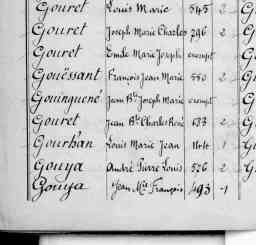 Gouret Louis Marie 545 2
Gouret Joseph Marie Charles 796 2
Gouret Emile Marie Joseph exempt
Gouëssant François Jean Marie 550 2
Gouinguené Jean Bte Joseph Marie exempt
Gouret Jean Bte Charles René 633 2
Gourhan Louis Marie Jean 2
Gouya André Pierre Louis 526 2
Gouya Jean Mie François 493 -1